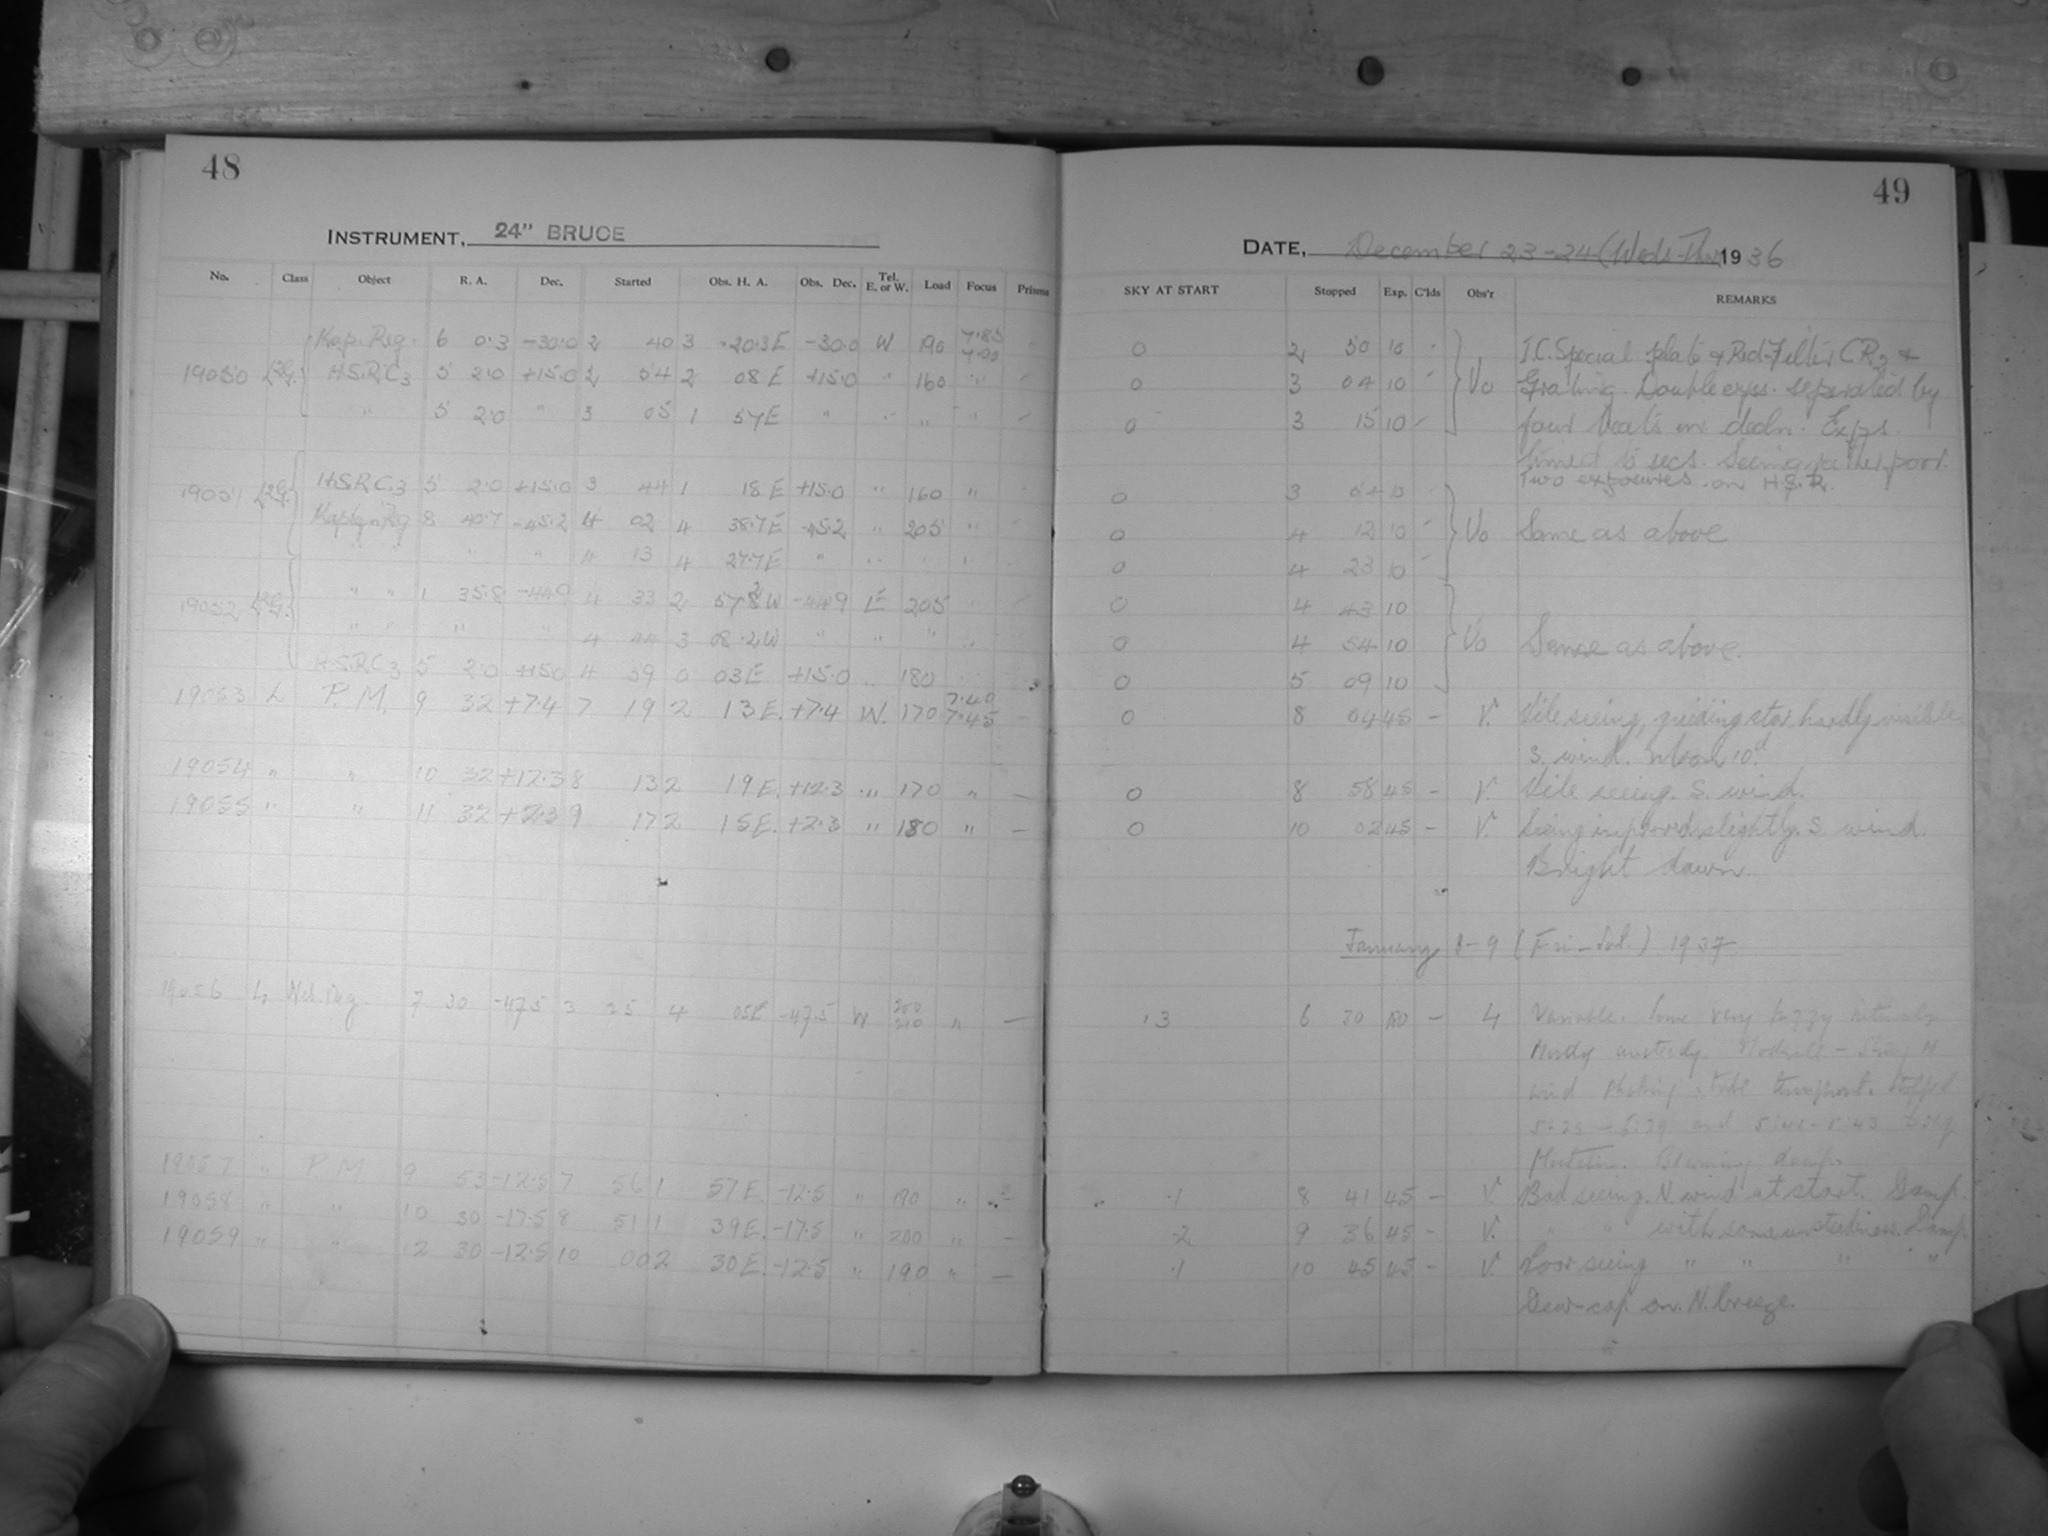 48
INSTRUMENT, 24" BRUCE
No. Class Object R. A. Dec. Started Obs. H. A. Obs. Dec. Tel. E. or W. Load Focus Prisms
Kap. Reg. 6 0.3 -30.0 2 40 3 20.3E -30.0 W 190
19050 H.S.R.C.3 5 2.0 +15.0 2 54 2 08 E +15.0 " 160 "
" 5 2.0 " 3 05 1 57E " " " "
19051 H.S.R.C.3 5 2.0 +15.0 3 44 1 18 E +15.0 " 160 "
Kapteyn Reg 8 40.7 -45.2 4 02 4 38.7E -45.2 " 205 "
" " " " 4 13 4 27.7E "
19052 " " 1 35.8 -44.9 4 33 2 W -44.9 E 205 "
" " " " 4 44 3 08.2W " " "
H.S.R.C.3 5 2.0 +15.0 4 59 0 03E +15.0 180
19053 L P. M. 9 32 +7.4 7 19 2 13E. +7.4 W. 170 7.40 7.45 -
19054 " " 10 32 +12.3 8 13 2 19E. +12.3 " 170 " -
19055 " " 11 32 +2.3 9 17 2 15E. +2.3 " 180 " -
19056 L 7 30 -47.5 3 25 4 05E -47.5 W " -
19057 " P. M 9 53 -12.5 7 56 1 57E. -12.5 " 190 " -
19058 " " 10 30 -17.5 8 51 1 39E. -17.5 " 200 " -
19059 " " 12 30 -12.5 10 00 2 30E. -12.5 " 190 " -
49
DATE, December 23-24 (Weds-Thur) 1936
SKY AT START Stopped Exp. C'lds Obs'r REMARKS
0 2 50 10 I.C. Special plate & Red Filter CR2 &
0 3 04 10 Vo Grating. Double exps. separated by
0 3 15 10 four beats in decln. Exps.
timed to secs. Seeing rather poor.
Two exposures on H.S.R.
0 3 54 10
0 4 12 10 Vo Same as above
0 4 23 10
0 4 43 10
0 4 54 10 Vo Same as above.
0 5 09 10
0 8 04 45 - V. Vile seeing, guiding star hardly visible.
S. wind. Moon 10d.
0 8 58 45 - V. Vile seeing. S. wind.
0 10 02 45 - V. Seeing improved slightly. S. wind.
Bright dawn.
January 8-9 (Fri-Sat.) 1937
.3 6 30 180 - L Variable. Some very fuzzy intervals
Mostly unsteady. Moderate - Strong N
wind shaking tube throughout. Stopped
and
Becoming damp.
.1 8 41 45 - V. Bad seeing. N. wind at start. Damp.
.2 9 36 45 - V. " " with some unsteadiness. Damp
.1 10 45 45 - V. Poor seeing " " " "
Dew-cap on. N. breeze.